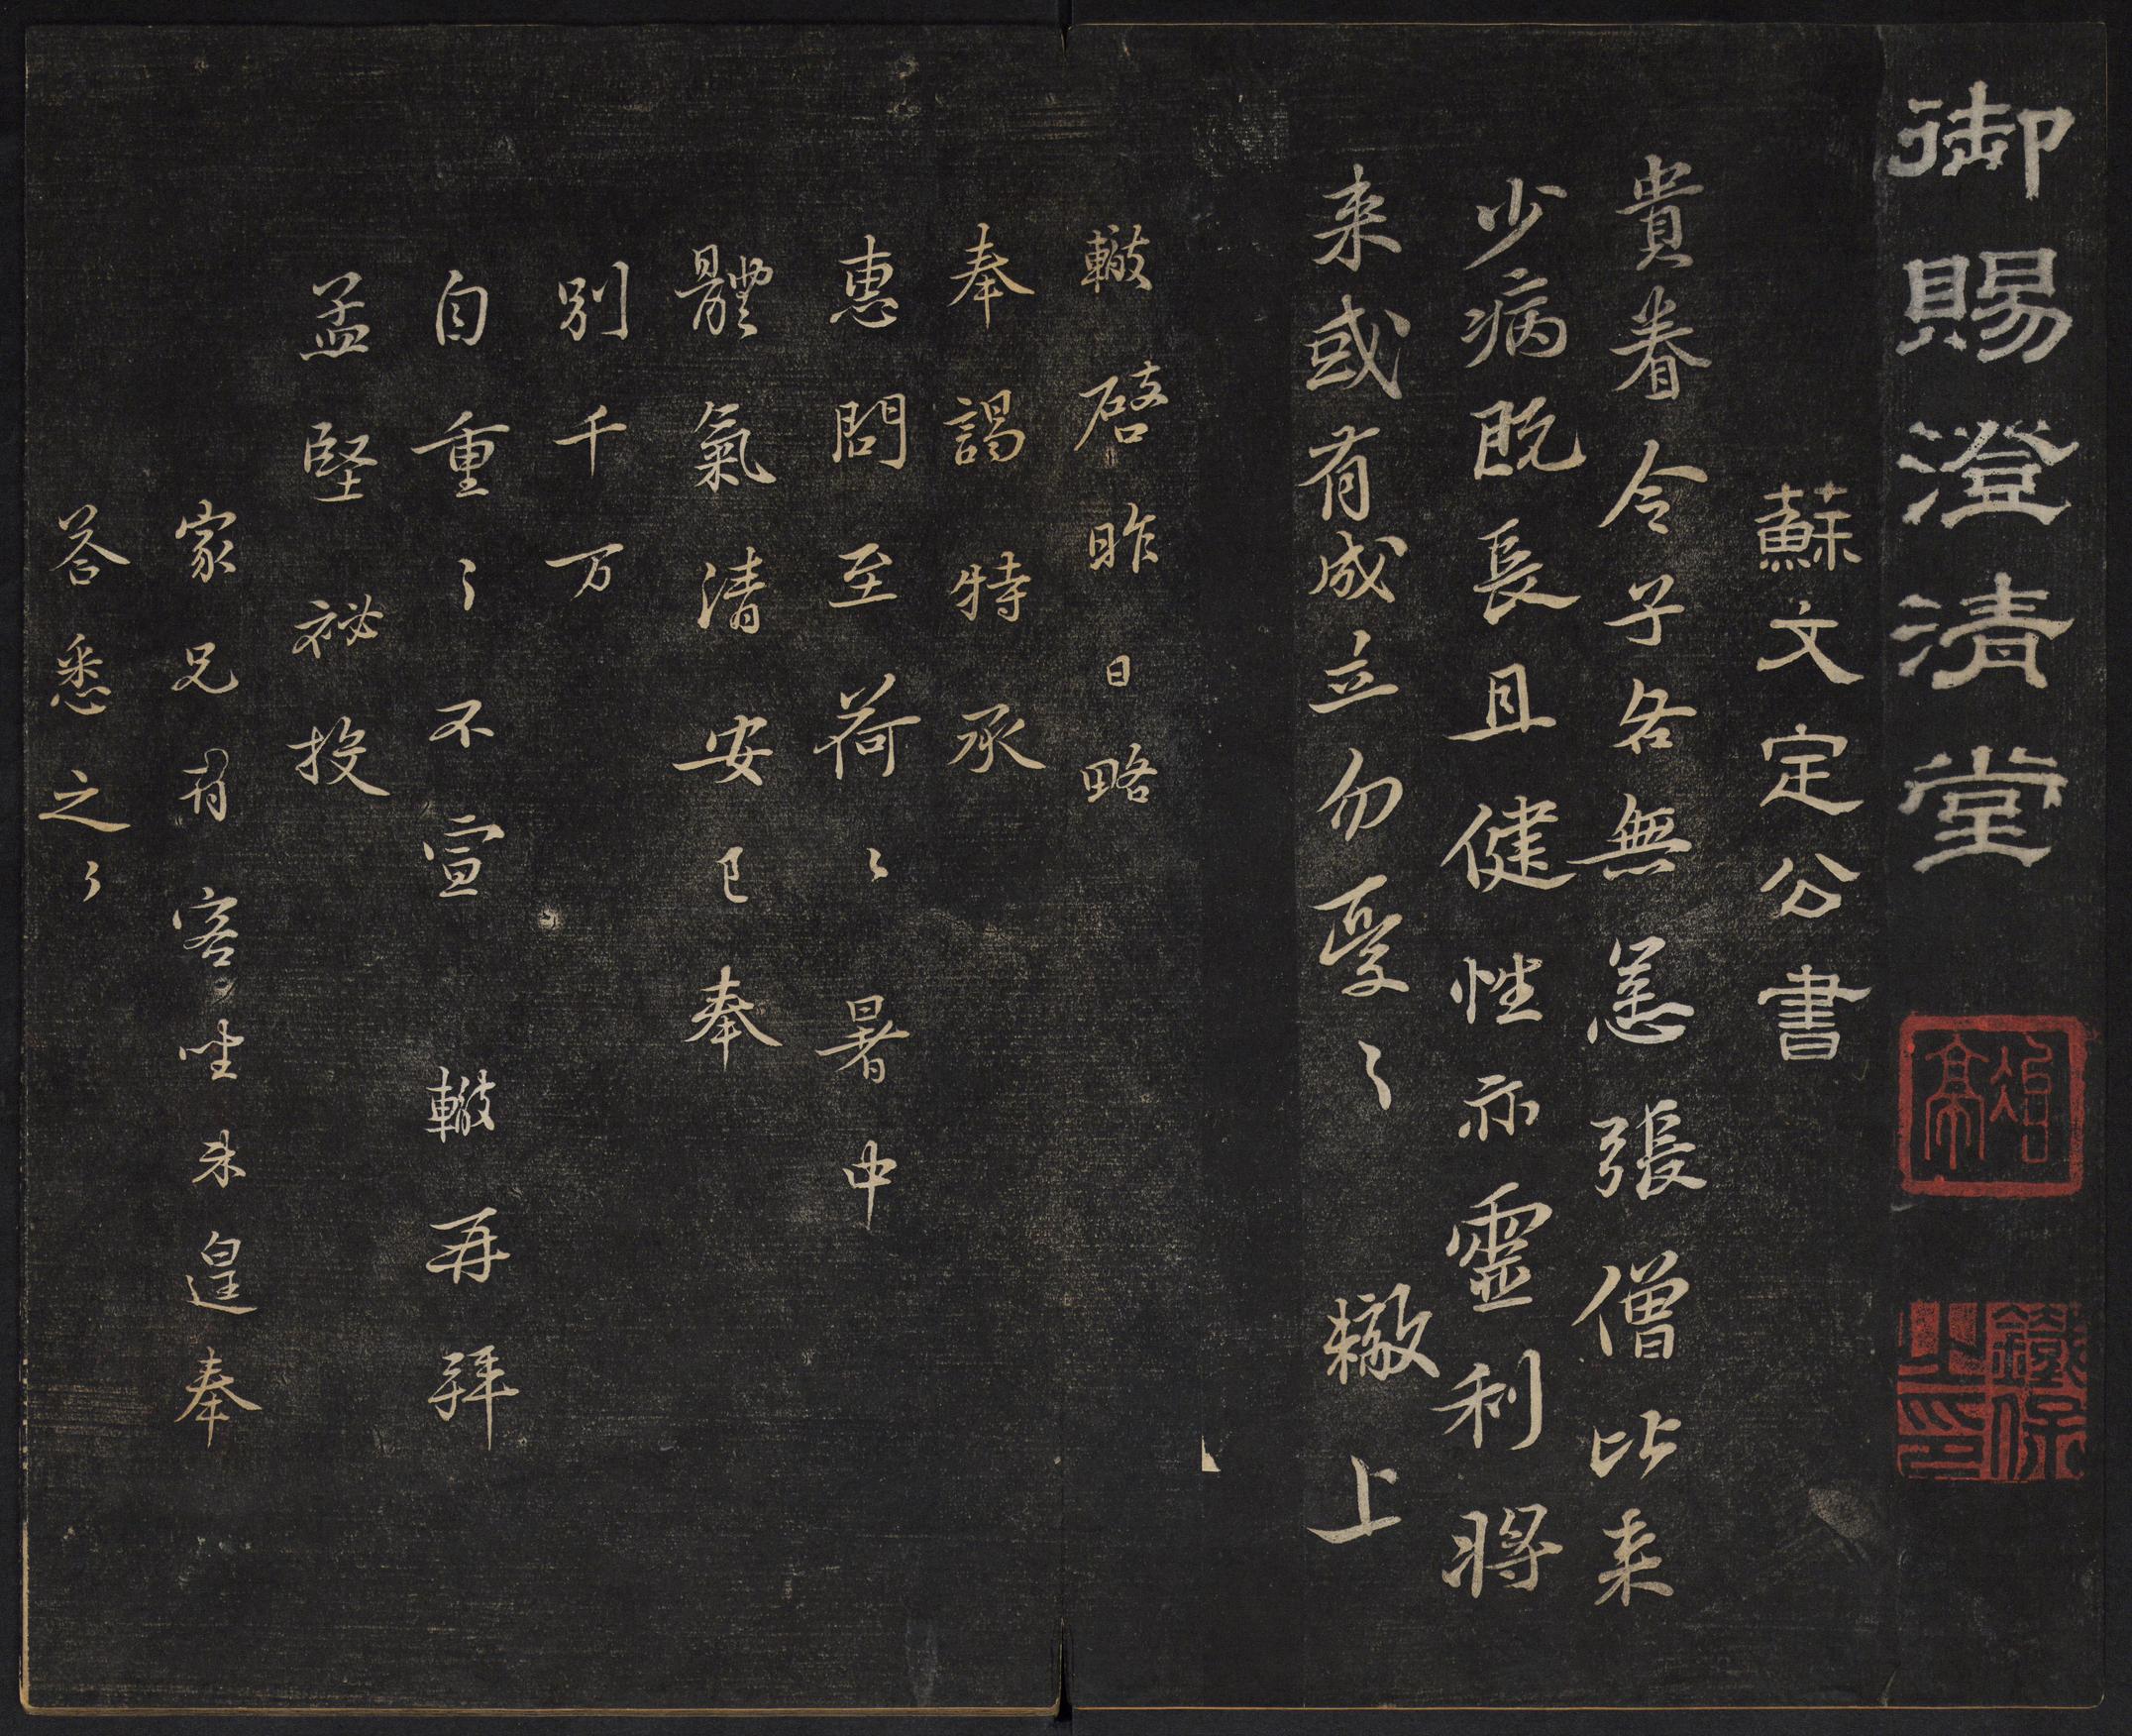 御賜澄清堂
鐵保之印
蘇文定公書
貴眷令子各無恙張僧比来
少病既長且健性亦靈利將
来或有成立勿憂〻轍上
轍啓昨日略
奉謁特承
惠問至荷〻暑中
體氣清安已奉
別千万
自重〻不宣轍再拜
孟堅祕校
家兄有客坐未遑奉
荅悉之〻